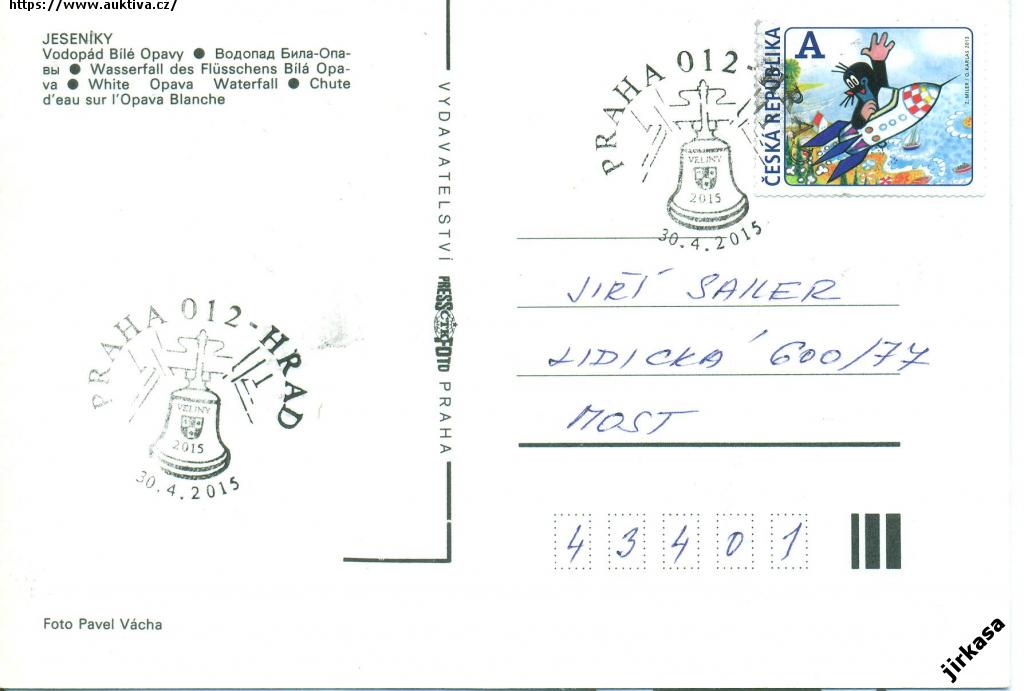 https://www.auktiva.cz/
JESENÍKY
Vodopád Bílé Opavy ● Водопад Била-Опа-
вы ● Wasserfall des Flüsschens Bílá Opa-
va ● White Opava Waterfall ● Chute
d'eau sur l'Opava Blanche
VYDAVATELSTVÍ PRESSFOTO PRAHA
ČTK
PRAHA 012
VELINY
2015
30.4.2015
A
ČESKÁ REPUBLIKA
JIŘÍ SAILER
LIDICKÁ 600/77
MOST
43401
PRAHA 012-HRAD
VELINY
2015
30.4.2015
Foto Pavel Vácha
jirkasa